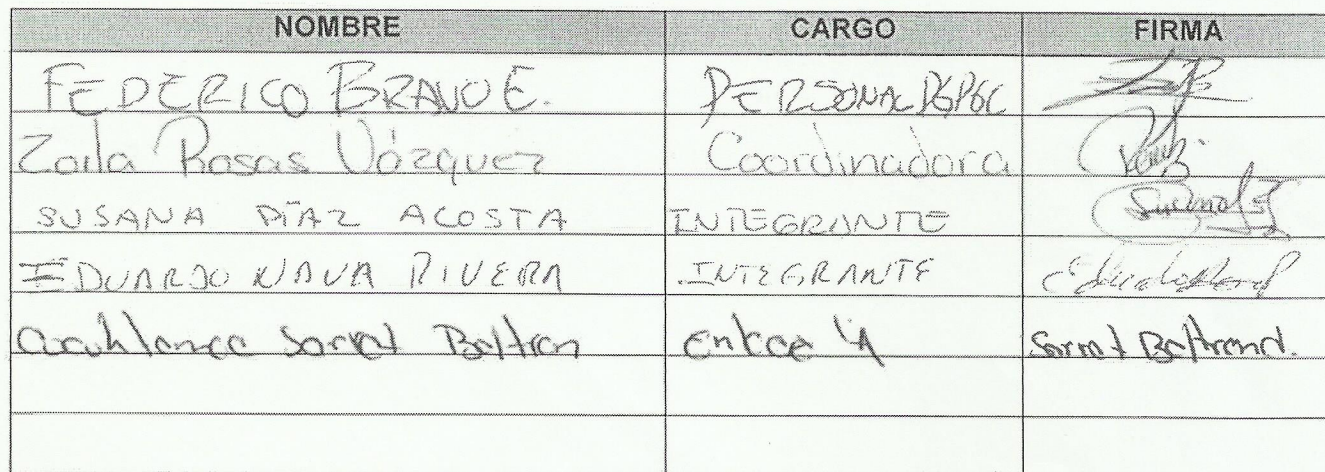 NOMBRE CARGO FIRMA
FEDERICO BRAVO E. PERSONAL DGPGC
Zoila Rosas Vázquez Coordinadora
SUSANA DÍAZ ACOSTA INTEGRANTE
EDUARDO NAVA RIVERA INTEGRANTE
Sarat Beltran Enlace Sarat Beltrand.